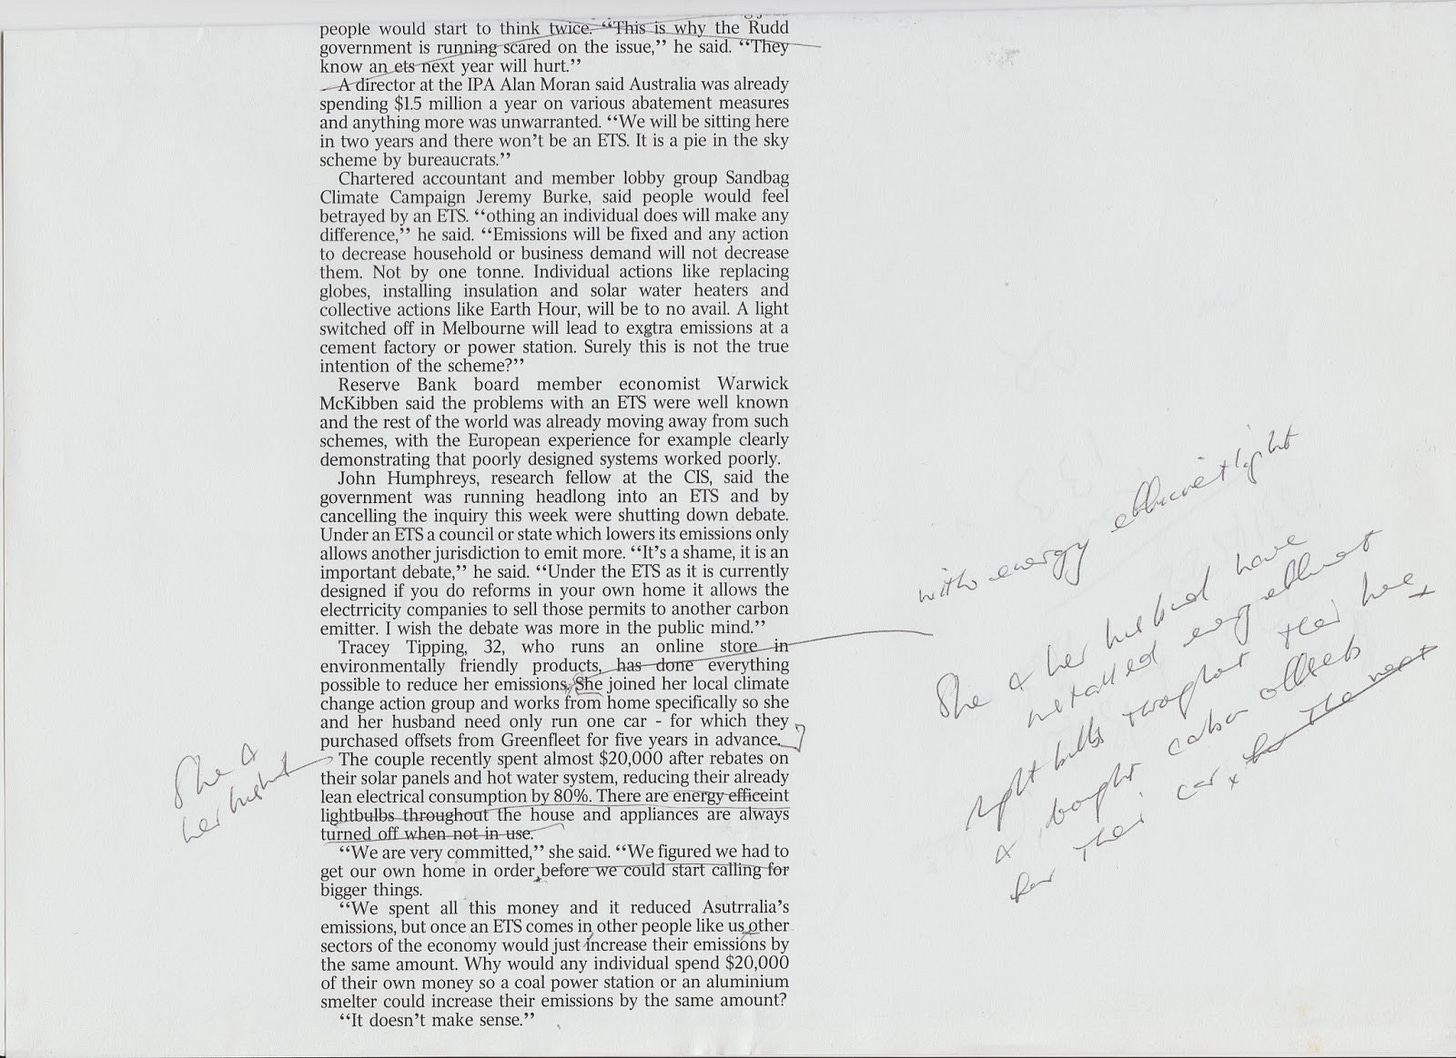 people would start to think twice. “This is why the Rudd
government is running scared on the issue,” he said. “They
know an ets next year will hurt.”
A director at the IPA Alan Moran said Australia was already
spending $1.5 million a year on various abatement measures
and anything more was unwarranted. “We will be sitting here
in two years and there won’t be an ETS. It is a pie in the sky
scheme by bureaucrats.”
Chartered accountant and member lobby group Sandbag
Climate Campaign Jeremy Burke, said people would feel
betrayed by an ETS. “othing an individual does will make any
difference,” he said. “Emissions will be fixed and any action
to decrease household or business demand will not decrease
them. Not by one tonne. Individual actions like replacing
globes, installing insulation and solar water heaters and
collective actions like Earth Hour, will be to no avail. A light
switched off in Melbourne will lead to exgtra emissions at a
cement factory or power station. Surely this is not the true
intention of the scheme?”
Reserve Bank board member economist Warwick
McKibben said the problems with an ETS were well known
and the rest of the world was already moving away from such
schemes, with the European experience for example clearly
demonstrating that poorly designed systems worked poorly.
John Humphreys, research fellow at the CIS, said the
government was running headlong into an ETS and by
cancelling the inquiry this week were shutting down debate.
Under an ETS a council or state which lowers its emissions only
allows another jurisdiction to emit more. “It’s a shame, it is an
important debate,” he said. “Under the ETS as it is currently
designed if you do reforms in your own home it allows the
electrricity companies to sell those permits to another carbon
emitter. I wish the debate was more in the public mind.”
Tracey Tipping, 32, who runs an online store in
environmentally friendly products, has done everything
possible to reduce her emissions. She joined her local climate
change action group and works from home specifically so she
and her husband need only run one car - for which they
purchased offsets from Greenfleet for five years in advance.
The couple recently spent almost $20,000 after rebates on
their solar panels and hot water system, reducing their already
lean electrical consumption by 80%. There are energy efficeint
lightbulbs throughout the house and appliances are always
turned off when not in use.
“We are very committed,” she said. “We figured we had to
get our own home in order before we could start calling for
bigger things.
“We spent all this money and it reduced Asutrralia’s
emissions, but once an ETS comes in other people like us other
sectors of the economy would just increase their emissions by
the same amount. Why would any individual spend $20,000
of their own money so a coal power station or an aluminium
smelter could increase their emissions by the same amount?
“It doesn’t make sense.”
She &
her husband
with energy efficient light
She & her husband have
installed energy efficient
light bulbs throughout their home
& bought carbon offsets
for their car